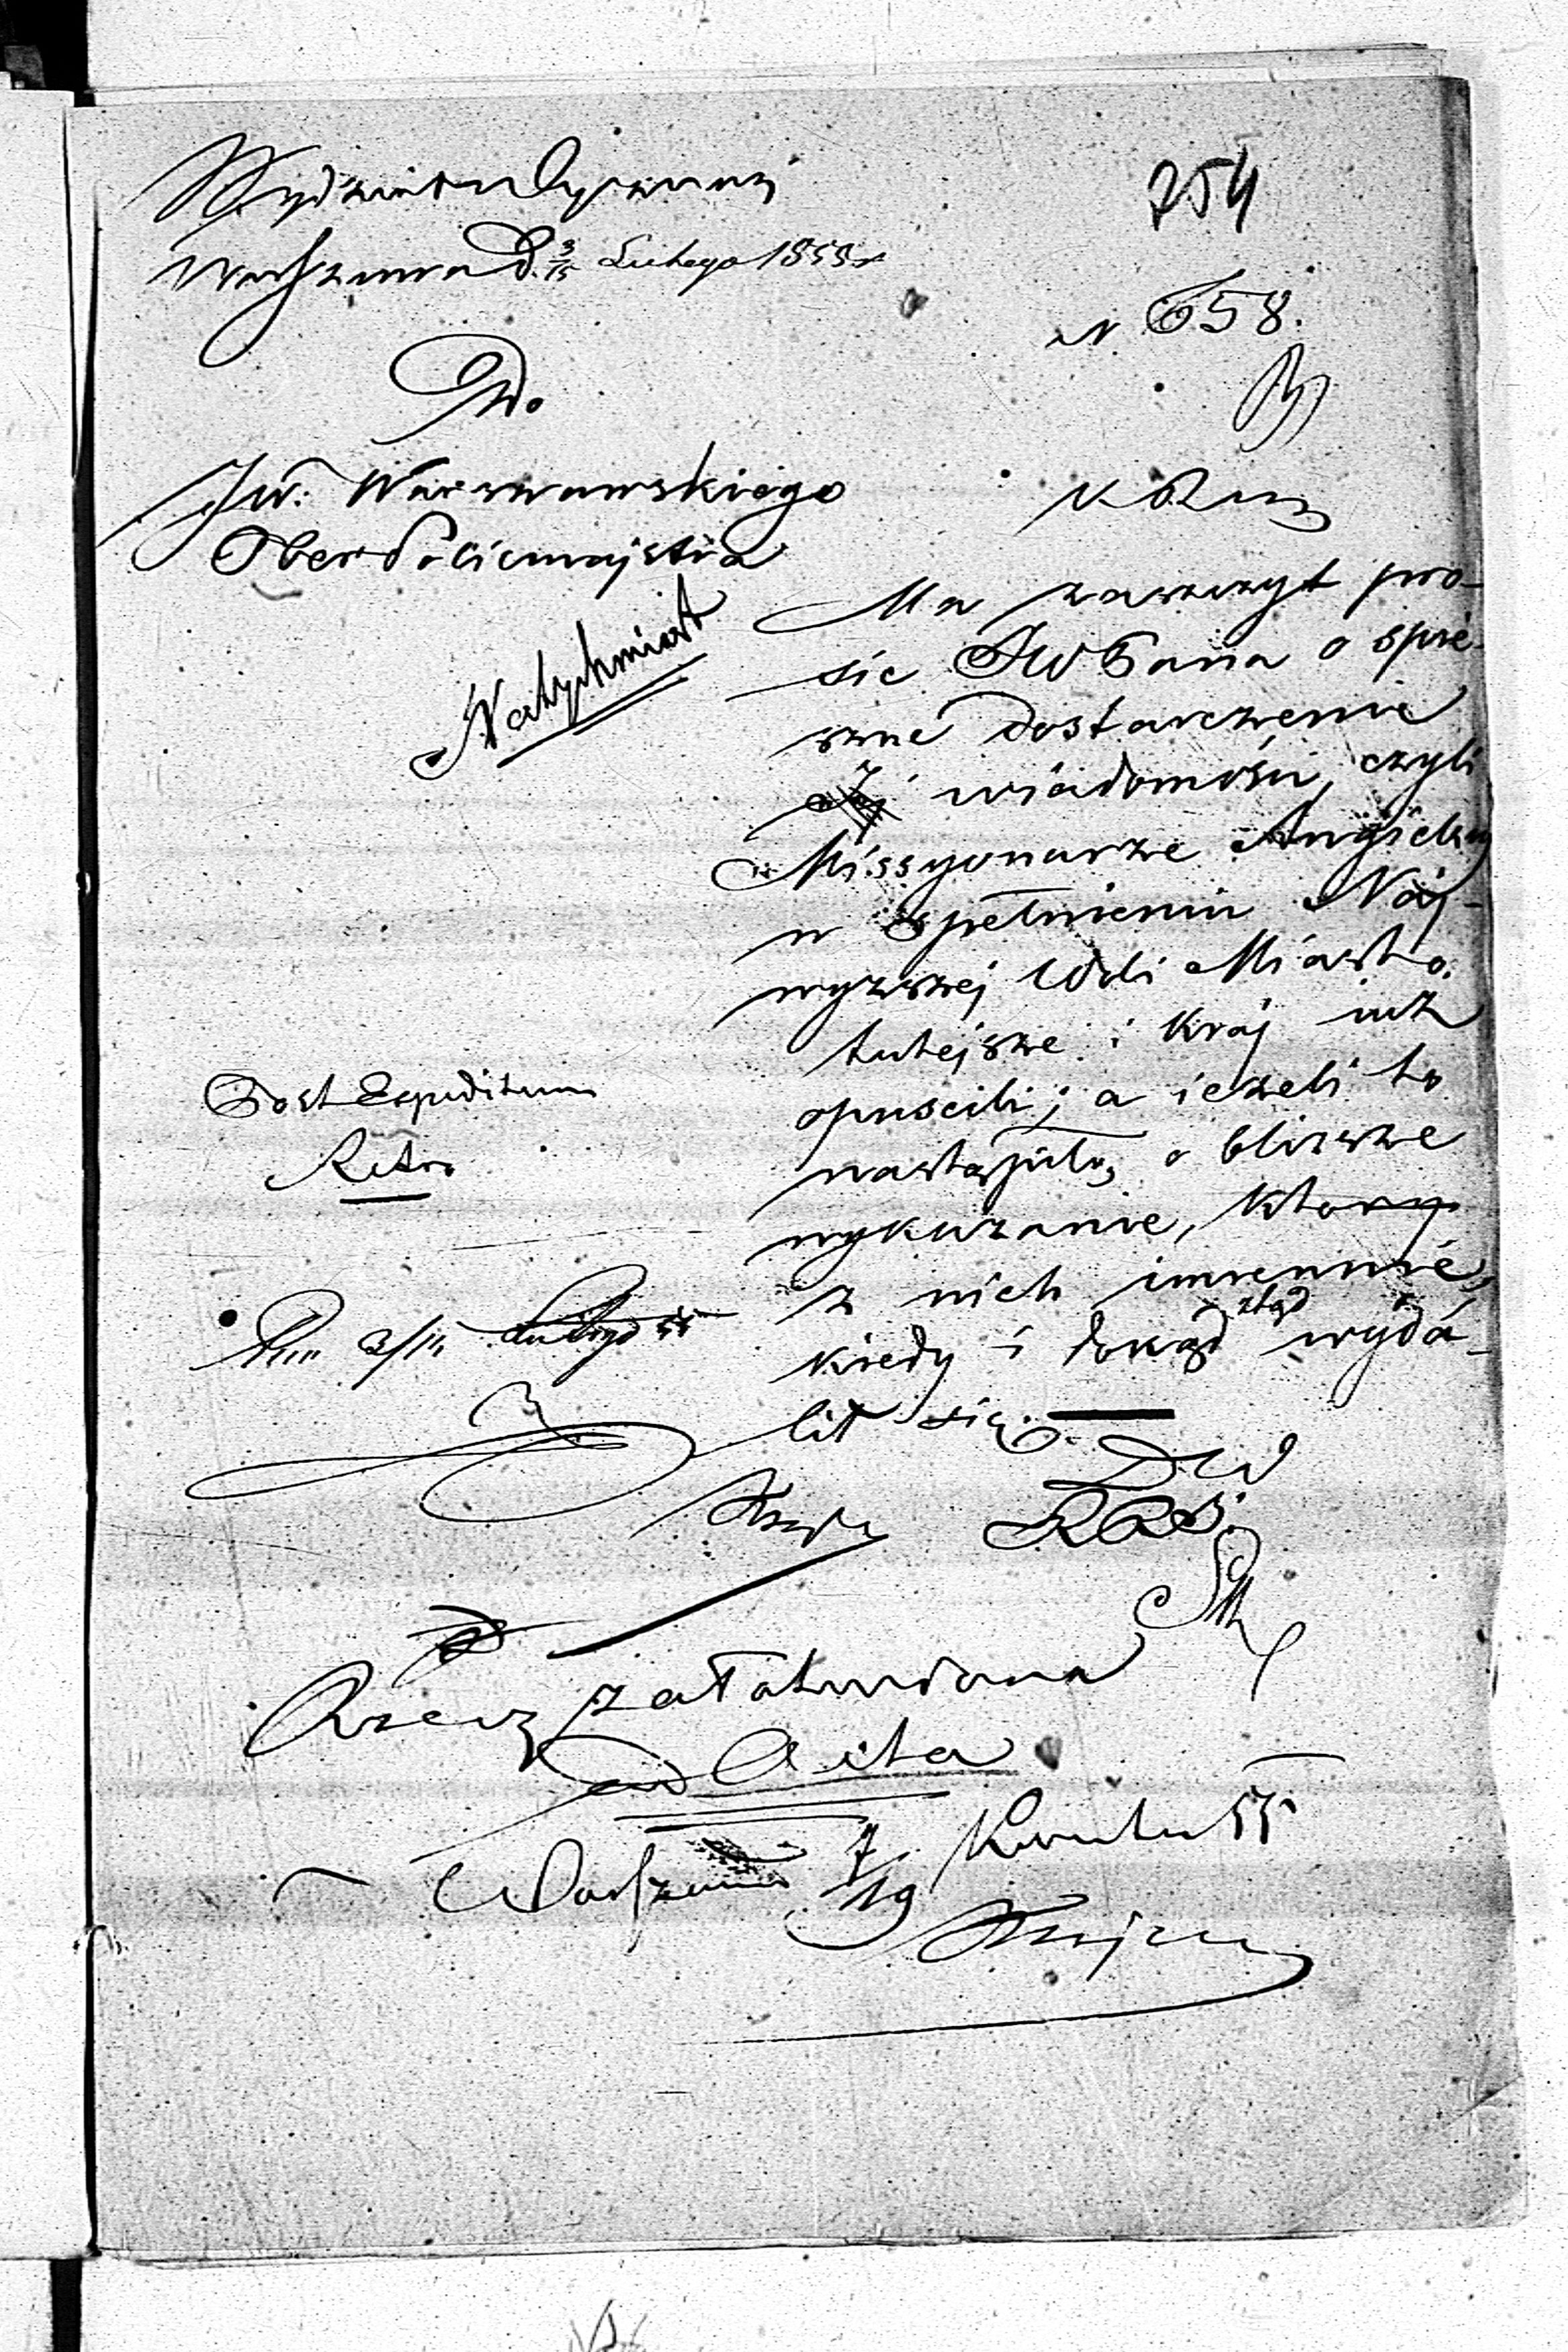 254
Wydział Wyznań
Warszawa d. 3/15 Lutego 1855 r
N. 658.
Do
JW. Warszawskiego
OberPolicmajstra
Natychmiast
Ma zaszczyt pro-
sić JWPana o spie-
szne dostarczenie
wiadomości, czyli
Missyonarze Angielscy
w spełnieniu Naj-
wyższej Woli Miasto
tutejsze i Kraj iuż
opuscili; a ieżeli to
nastąpiło, o bliższe
wykazanie, który
z nich imiennie,
kiedy i dokąd ztąd wyda-
lił się.
Post Expeditum
Retro
3/15 Lutego 55
D W
Rzecz załatwiona
ad Acta
Warszawa 7/19 Kwietn 55